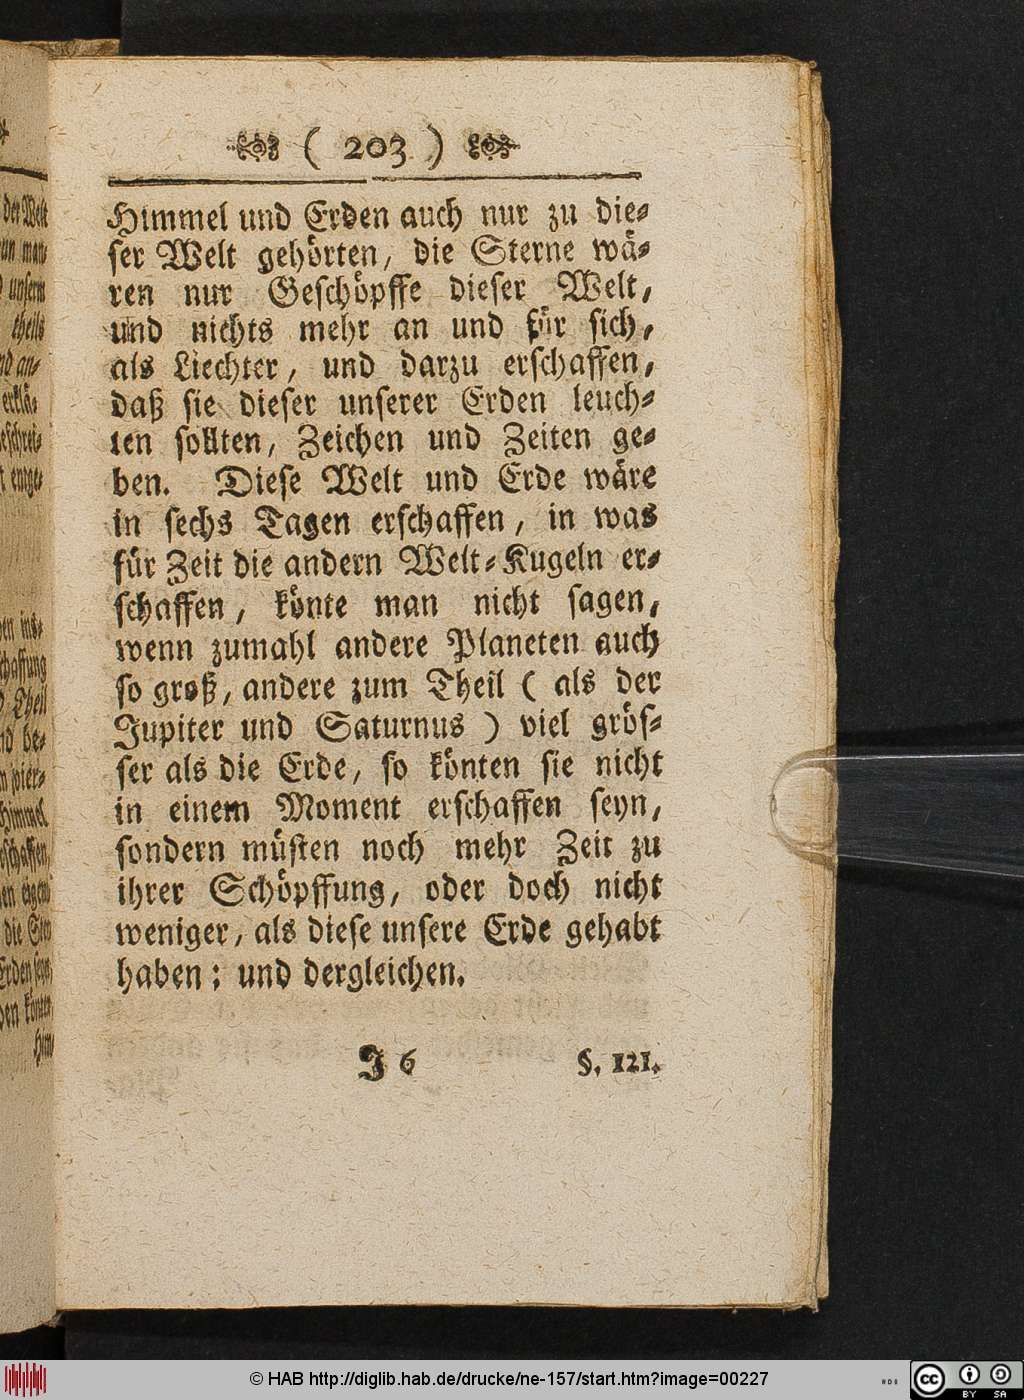 ( 203 )
Himmel und Erden auch nur zu die-
ser Welt gehörten, die Sterne wä-
ren nur Geschöpffe dieser Welt,
und nichts mehr an und für sich,
als Liechter, und darzu erschaffen,
daß sie dieser unserer Erden leuch-
ten sollten, Zeichen und Zeiten ge-
ben. Diese Welt und Erde wäre
in sechs Tagen erschaffen, in was
für Zeit die andern Welt-Kugeln er-
schaffen, könte man nicht sagen,
wenn zumahl andere Planeten auch
so groß, andere zum Theil ( als der
Jupiter und Saturnus ) viel grös-
ser als die Erde, so könten sie nicht
in einem Moment erschaffen seyn,
sondern müsten noch mehr Zeit zu
ihrer Schöpffung, oder doch nicht
weniger, als diese unsere Erde gehabt
haben; und dergleichen.
J 6 §. 121.
© HAB http://diglib.hab.de/drucke/ne-157/start.htm?image=00227
cc BY SA